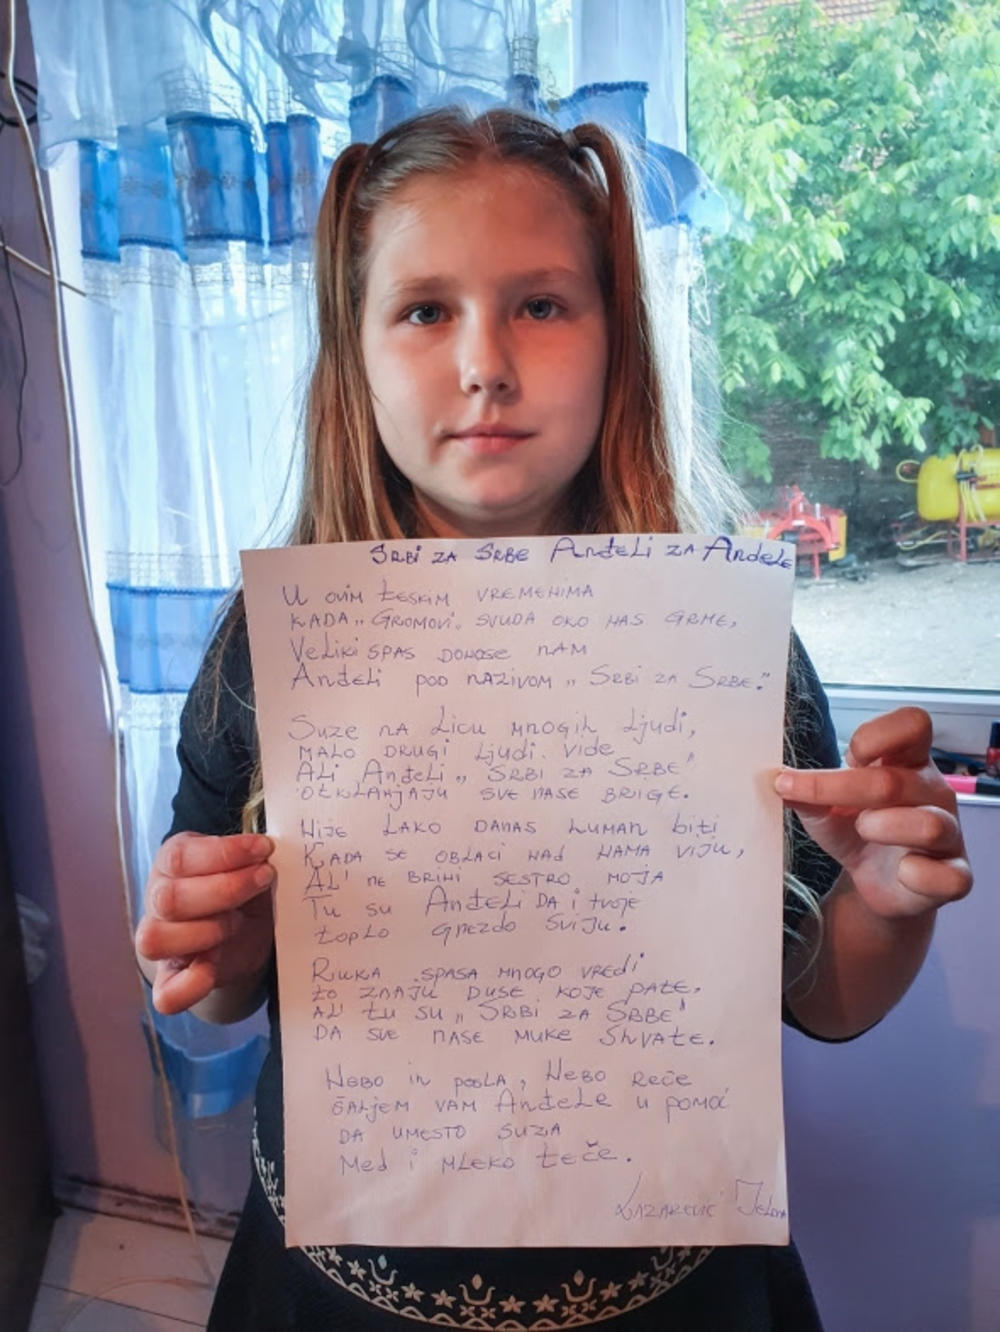 SRBI ZA SRBE ANĐELI ZA ANĐELE
U OVIM TESKIM VREMENIMA
KADA „GROMOVI„ SVUDA OKO NAS GRME,
VELIKI SPAS DONOSE NAM
ANĐELI POD NAZIVOM „SRBI ZA SRBE."
SUZE NA LICU MNOGIH LJUDI,
MALO DRUGI LJUDI VIDE
ALI ANĐELI „SRBI ZA SRBE"
OTKLANJAJU SVE NASE BRIGE.
NIJE LAKO DANAS HUMAN BITI
KADA SE OBLACI NAD NAMA VIJU,
AL' NE BRINI SESTRO MOJA
TU SU ANĐELI DA I TVOJE
TOPLO GNEZDO SVIJU.
RUKA SPASA MNOGO VREDI
TO ZNAJU DUSE KOJE PATE,
AL' TU SU „SRBI ZA SRBE"
DA SVE NASE MUKE SHVATE.
NEBO IH POSLA, NEBO REČE
ŠALJEM VAM ANĐELE U POMOĆ
DA UMESTO SUZA
MED I MLEKO TEČE.
LAZAREVIĆ JELENA